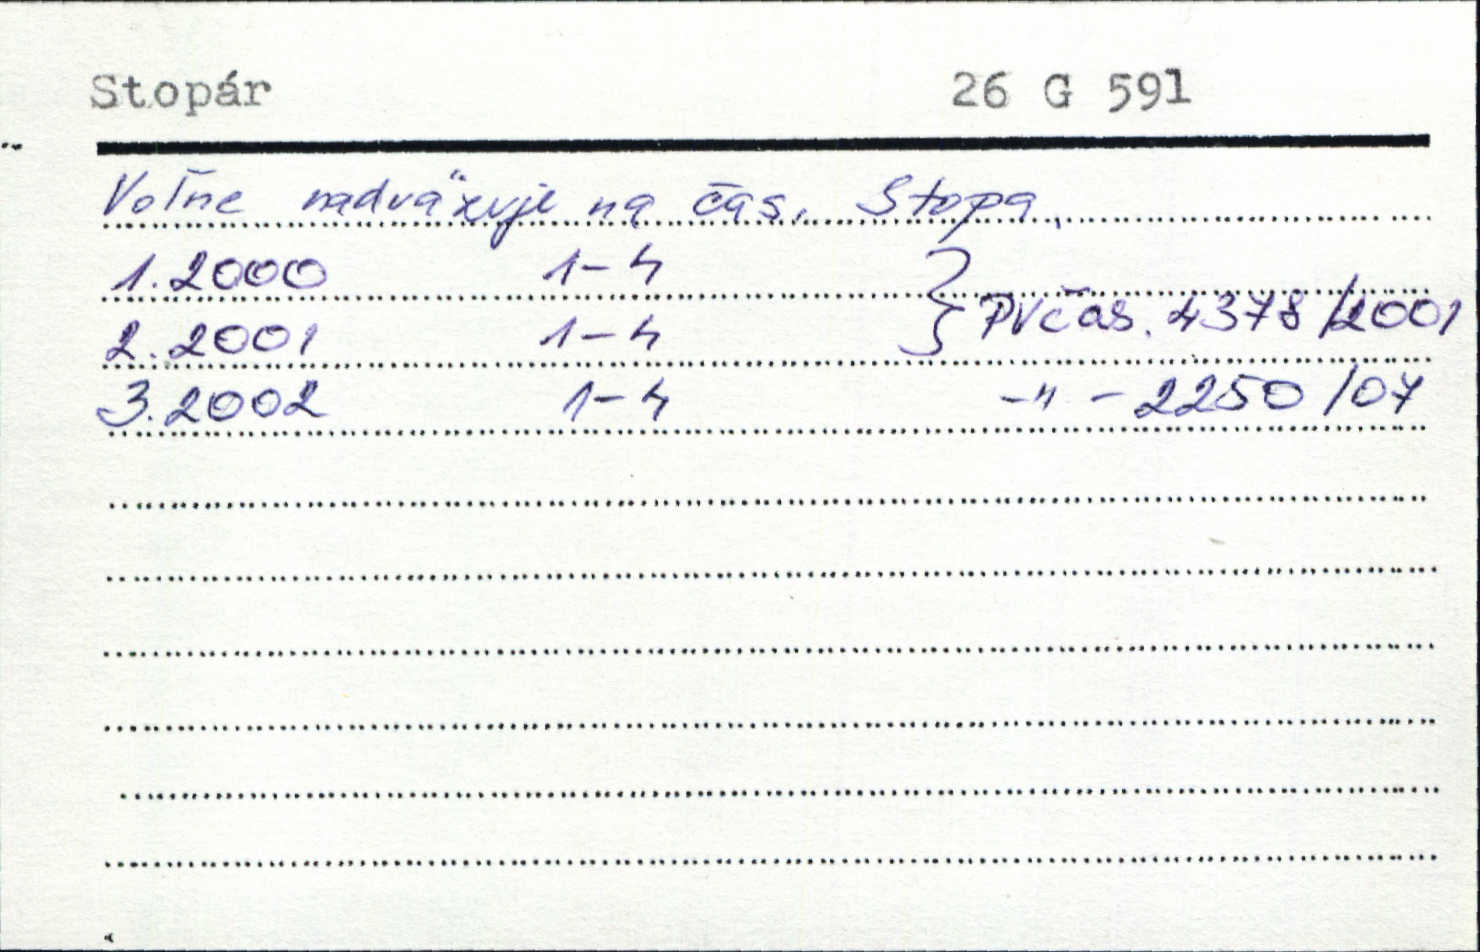 Stopár 26 G 591
Voľne nadväzuje na čas. Stopa.
1.2000 1-4
2.2001 1-4 } PVčas. 4378/2001
3.2002 1-4 -"- 2250/07